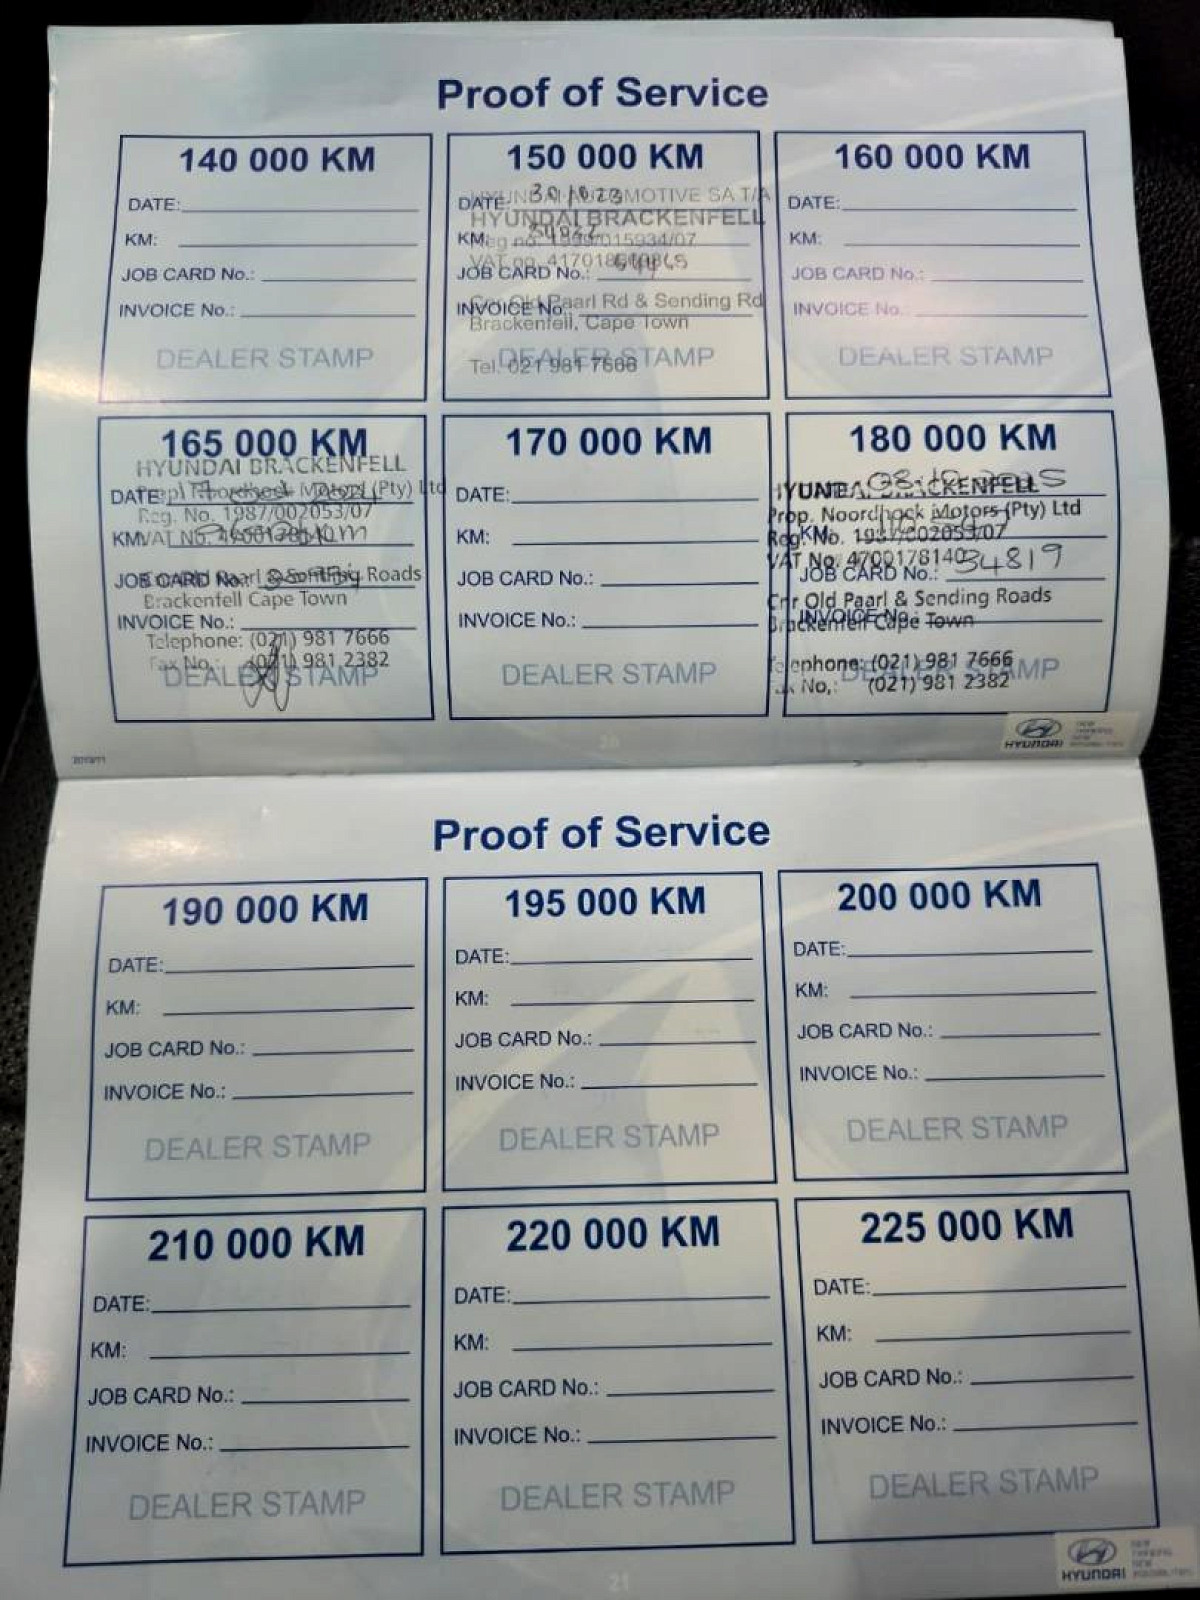 Proof of Service
140 000 KM
DATE:
KM:
JOB CARD No.:
INVOICE No.:
DEALER STAMP
150 000 KM
DATE:
KM:
JOB CARD No.:
INVOICE No.:
DEALER STAMP
HYUNDAI AUTOMOTIVE SA T/A
HYUNDAI BRACKENFELL
Reg no. 1999/015934/07
VAT no.
Cnr Old Paarl Rd & Sending Rd
Brackenfell, Cape Town
Tel. 021 981 7666
160 000 KM
DATE:
KM:
JOB CARD No.:
INVOICE No.:
DEALER STAMP
165 000 KM
DATE:
KM:
JOB CARD No.:
INVOICE No.:
DEALER STAMP
HYUNDAI BRACKENFELL
Prop. Noordhoek Motors (Pty) Ltd
Reg. No. 1987/002053/07
VAT No.
Cnr Old Paarl & Sending Roads
Brackenfell Cape Town
Telephone: (021) 981 7666
Fax No.: (021) 981 2382
170 000 KM
DATE:
KM:
JOB CARD No.:
INVOICE No.:
DEALER STAMP
180 000 KM
DATE:
KM:
JOB CARD No.: 34819
INVOICE No.:
DEALER STAMP
HYUNDAI BRACKENFELL
Prop. Noordhoek Motors (Pty) Ltd
Reg. No. 1987/002053/07
VAT No. 4700178140
Cnr Old Paarl & Sending Roads
Brackenfell Cape Town
Telephone: (021) 981 7666
Fax No,: (021) 981 2382
HYUNDAI
NEW
THINKING
NEW
POSSIBILITIES
20
2013/11
Proof of Service
190 000 KM
DATE:
KM:
JOB CARD No.:
INVOICE No.:
DEALER STAMP
195 000 KM
DATE:
KM:
JOB CARD No.:
INVOICE No.:
DEALER STAMP
200 000 KM
DATE:
KM:
JOB CARD No.:
INVOICE No.:
DEALER STAMP
210 000 KM
DATE:
KM:
JOB CARD No.:
INVOICE No.:
DEALER STAMP
220 000 KM
DATE:
KM:
JOB CARD No.:
INVOICE No.:
DEALER STAMP
225 000 KM
DATE:
KM:
JOB CARD No.:
INVOICE No.:
DEALER STAMP
HYUNDAI
NEW
THINKING
NEW
POSSIBILITIES
21